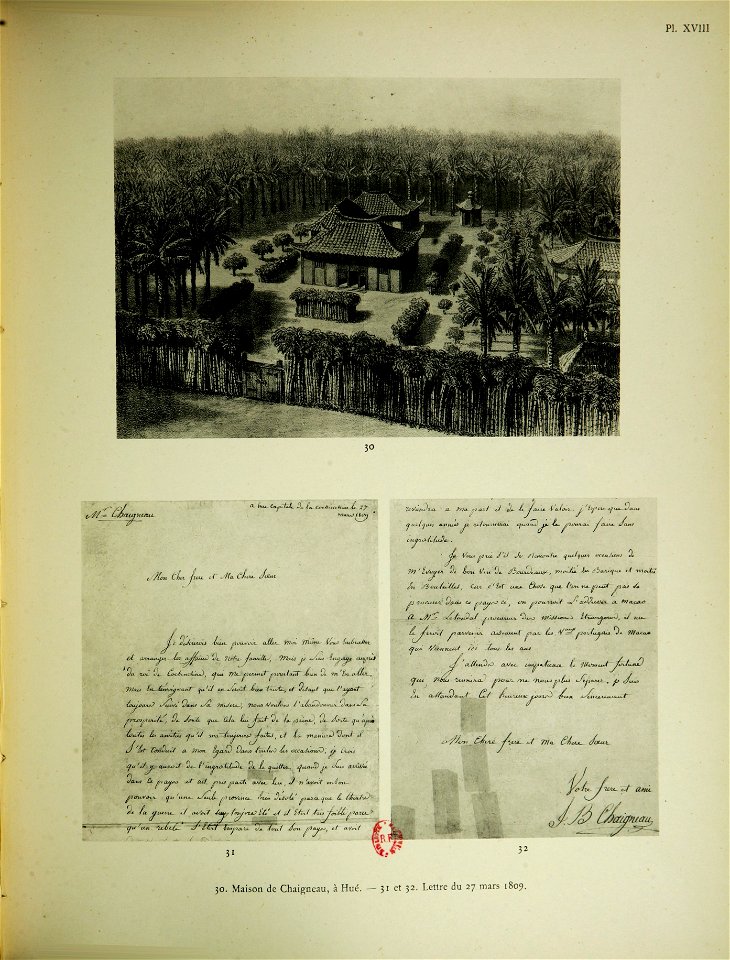 Pl. XVIII
30
Mr. Chaigneau
a hue Capitale de la cochinchine le 27
mars 1809
Mon Cher frere et Ma Chere Sœur
Je désirerois bien pouvoir aller moi même vous embrasser
et arranger les affaires de notre famille, Mais je suis engagé auprès
du roi de Cochinchine, qui me permet pourtant bien de m'en aller,
mais en temoignant qu'il en seroit bien triste, et disant que l'ayant
toujours suivi dans sa misere, nous voulons l'abandonner dans sa
prosperité, de sorte que cela lui fait de la peine, de sorte qu'après
toutes les amitiés qu'il m'a toujours faites, et la maniere dont il
s'est conduit a mon egard dans toutes les occasions, je crois
qu'il y auroit de l'ingratitude de le quitter, quand je suis arrivé
dans ce payse et ait pris parti avec lui, il n'avoit en son
pouvoir qu'une seule province très désolé parce que le théatre
de la guerre il avoit toujours été et il etoit très foible parce
qu'un rebele s'etoit emparé de tout son payse, et avoit
reviendra a ma part et de le faire valoir. j'espere que dans
quelques années je retournerai quand je le pourai faire sans
ingratitude.
Je vous prie s'il se rencontre quelques occasions de
m'envoyer de bon vin de Bourdeaux, moitié en Barique et moitié
en Bouteilles, car c'est une chose que l'on ne peut pas se
procurer dans ce payse ci, on pourroit l'addresser a macao
a Mr. Letondal procureur des missions Etrangeres, il me
le feroit parvenir aisement par les Vaux portugais de Macao
qui viennent ici tous les ans
J'attends avec impatience le moment fortuné
qui nous reunira pour ne nous plus separer, je suis
en attendant cet heureux jour bien sincerement
Mon Chere frere et Ma Chere Sœur
Votre frere et ami
J. B Chaigneau
31
32
30. Maison de Chaigneau, à Hué. — 31 et 32. Lettre du 27 mars 1809.